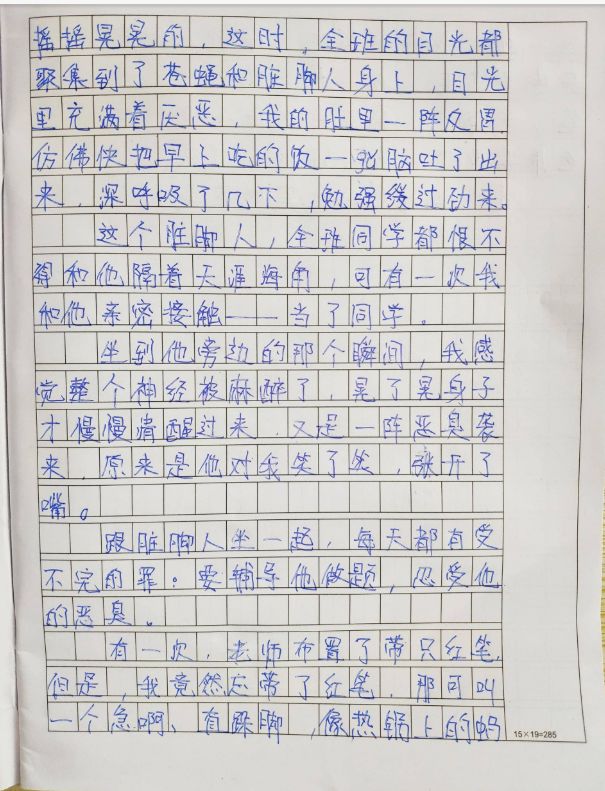 摇摇晃晃的，这时，全班的目光都
聚集到了苍蝇和脏脚人身上，目光
里充满着厌恶，我的肚里一阵反胃，
仿佛快把早上吃的饭一股脑吐了出
来，深呼吸了几下，勉强缓过劲来。
这个脏脚人，全班同学都恨不
得和他隔着天涯海角，可有一次我
和他亲密接触——当了同学。
坐到他旁边的那个瞬间，我感
觉整个神经被麻醉了，晃了晃身子
才慢慢清醒过来，又是一阵恶臭袭
来，原来是他对我笑了笑，张开了
嘴。
跟脏脚人坐一起，每天都有受
不完的罪。要辅导他做题，忍受他
的恶臭。
有一次，老师布置了带只红笔，
但是，我竟然忘带了红笔，那可叫
一个急啊、直跺脚，像热锅上的蚂
15×19=285